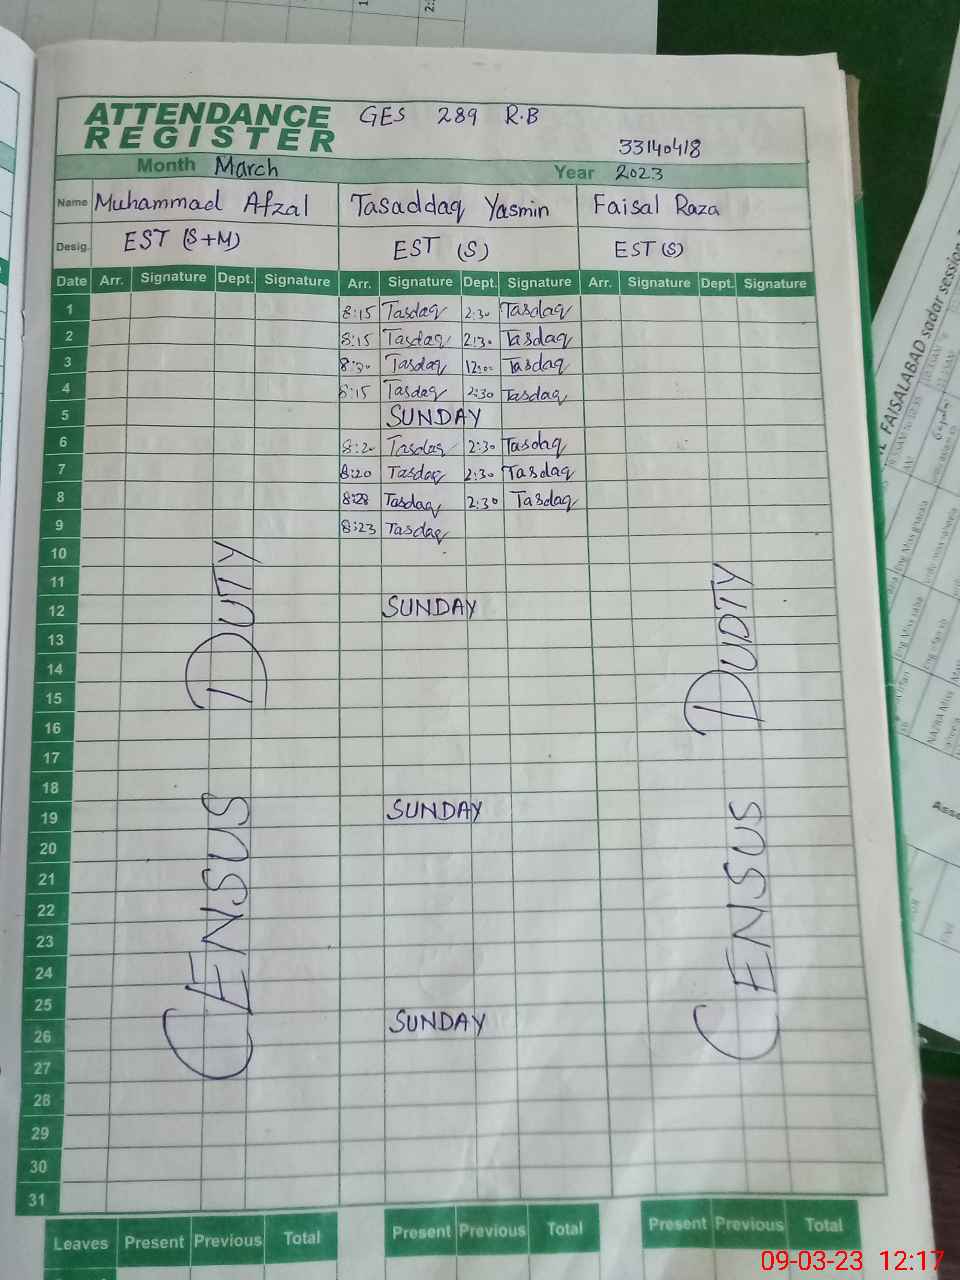 ATTENDANCE REGISTER GES 289 R.B
33140418
Month March Year 2023
Name Muhammad Afzal Tasaddaq Yasmin Faisal Raza
Desig. EST (S+M) EST (S) EST (S)
Date Arr. Signature Dept. Signature Arr. Signature Dept. Signature Arr. Signature Dept. Signature
1 8:15 Tasdaq 2:30 Tasdaq
2 8:15 Tasdaq 2:30 Tasdaq
3 Tasdaq 12:00 Tasdaq
4 8:15 Tasdaq 2:30 Tasdaq
5 SUNDAY
6 8:20 Tasdaq 2:30 Tasdaq
7 8:20 Tasdaq 2:30 Tasdaq
8 8:28 Tasdaq 2:30 Tasdaq
9 8:23 Tasdaq
10
11
12 SUNDAY
13
14
15
16
17
18
19 SUNDAY
20
21
22
23
24
25
26 SUNDAY
27
28
29
30
31
CENSUS DUTY
CENSUS DUDTY
Leaves Present Previous Total Present Previous Total Present Previous Total
FAISALABAD sadar session
09-03-23 12:17